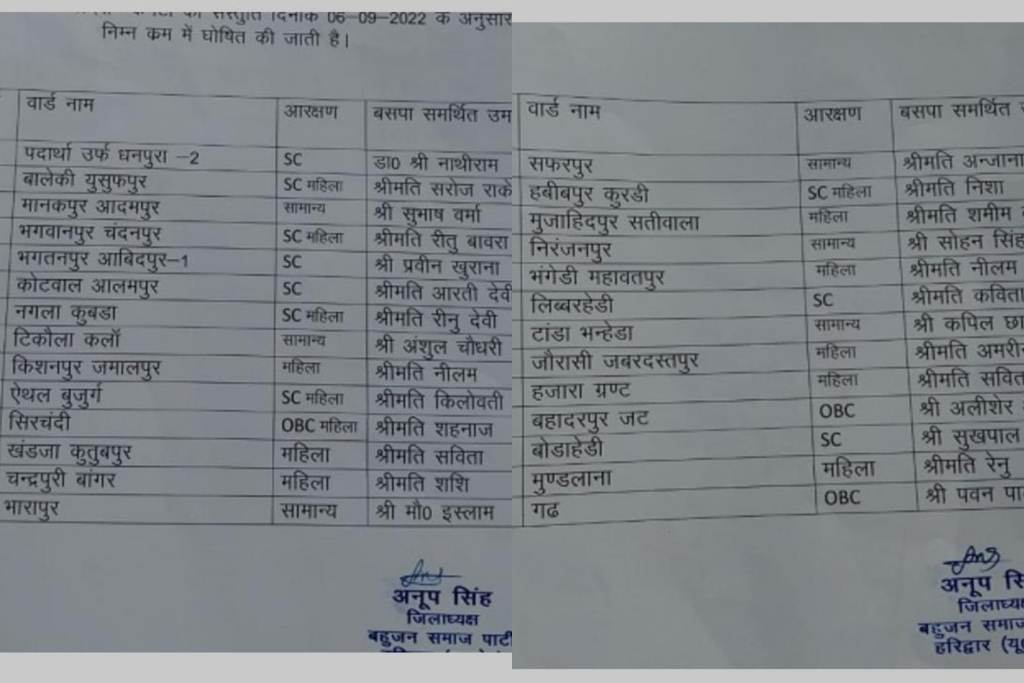 दिनांक 06-09-2022 के अनुसार
निम्न कम में घोषित की जाती है।
वार्ड नाम आरक्षण बसपा समर्थित
पदार्था उर्फ धनपुरा -2 SC डा0 श्री नाथीराम
बालेकी युसुफपुर SC महिला श्रीमति सरोज
मानकपुर आदमपुर सामान्य श्री सुभाष वर्मा
भगवानपुर चंदनपुर SC महिला श्रीमति रीतु बावरा
भगतनपुर आबिदपुर-1 SC श्री प्रवीन खुराना
कोटवाल आलमपुर SC श्रीमति आरती देवी
नगला कुबडा SC महिला श्रीमति रीनु देवी
टिकौला कलॉ सामान्य श्री अंशुल चौधरी
किशनपुर जमालपुर महिला श्रीमति नीलम
ऐथल बुजुर्ग SC महिला श्रीमति किलोवती
सिरचंदी OBC महिला श्रीमति शहनाज
खंडजा कुतुबपुर महिला श्रीमति सविता
चन्द्रपुरी बांगर महिला श्रीमति शशि
भारापुर सामान्य श्री मौ0 इस्लाम
अनूप सिंह
जिलाध्यक्ष
बहुजन समाज पार्टी
वार्ड नाम आरक्षण बसपा समर्थित
सफरपुर सामान्य श्रीमति
हबीबपुर कुरडी SC महिला श्रीमति निशा
मुजाहिदपुर सतीवाला महिला श्रीमति शमीम
निरंजनपुर सामान्य श्री सोहन सिंह
भंगेडी महावतपुर महिला श्रीमति नीलम
लिब्बरहेडी SC श्रीमति कविता
टांडा भन्हेडा सामान्य श्री कपिल
जौरासी जबरदस्तपुर महिला श्रीमति
हजारा ग्रण्ट महिला श्रीमति
बहादरपुर जट OBC श्री अलीशेर
बोडाहेडी SC श्री सुखपाल
मुण्डलाना महिला श्रीमति रेनु
गढ OBC श्री पवन
अनूप
बहुजन
हरिद्वार